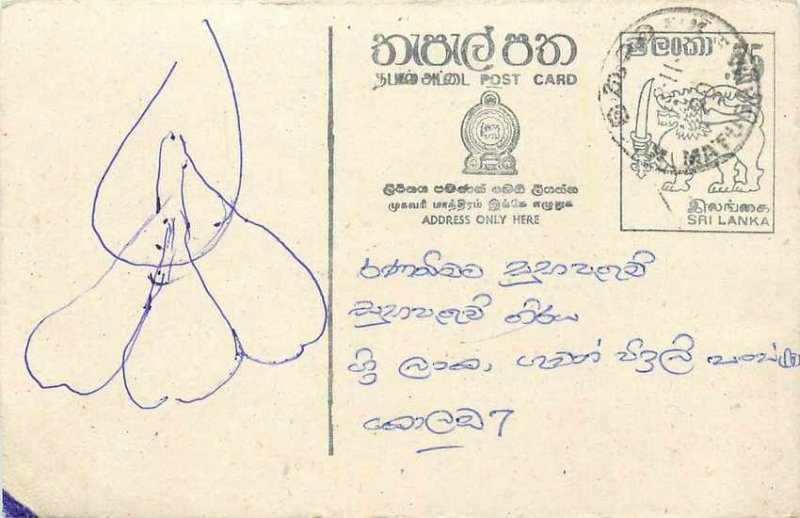 තැපැල් පත
தபால் அட்டை POST CARD
ලිපිනය පමණක් මෙහි ලියන්න
முகவரி மாத்திரம் இங்கே எழுதுக
ADDRESS ONLY HERE
ශ්‍රී ලංකා 75
இலங்கை
SRI LANKA
MATUGAMA
සුභාපතුම්
සුභාපතුම් ගීතය
ශ්‍රී ලංකා ගුවන් විදුලි
කොළඹ 7